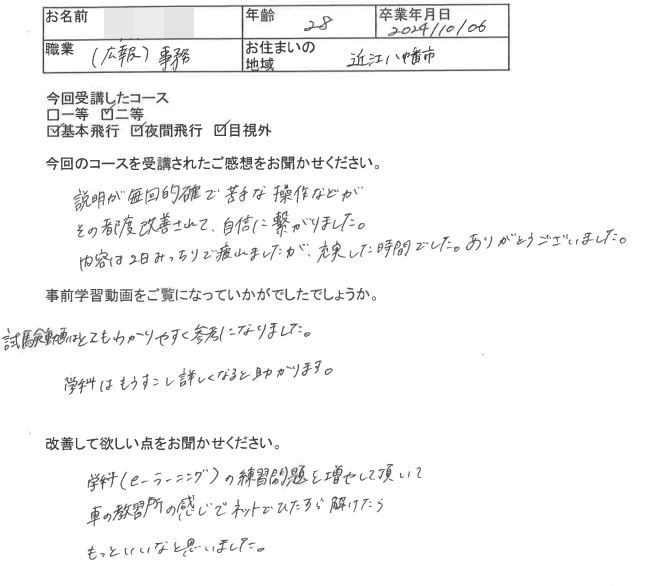 お名前 年齢 28 卒業年月日 2024/10/06
職業 (広報) 事務 お住まいの地域 近江八幡市
今回受講したコース
□一等 ☑二等
☑基本飛行 ☑夜間飛行 ☑目視外
今回のコースを受講されたご感想をお聞かせください。
説明が毎回的確で苦手な操作などが
その都度改善されて、自信に繋がりました。
内容は2日みっちりで疲れましたが、充実した時間でした。ありがとうございました。
事前学習動画をご覧になっていかがでしたでしょうか。
試験動画はとてもわかりやすく参考になりました。
学科はもうすこし詳しくなると助かります。
改善して欲しい点をお聞かせください。
学科(eーラーニング)の練習問題を増やして頂いて
車の教習所の感じでネットでひたすら解けたら
もっといいなと思いました。